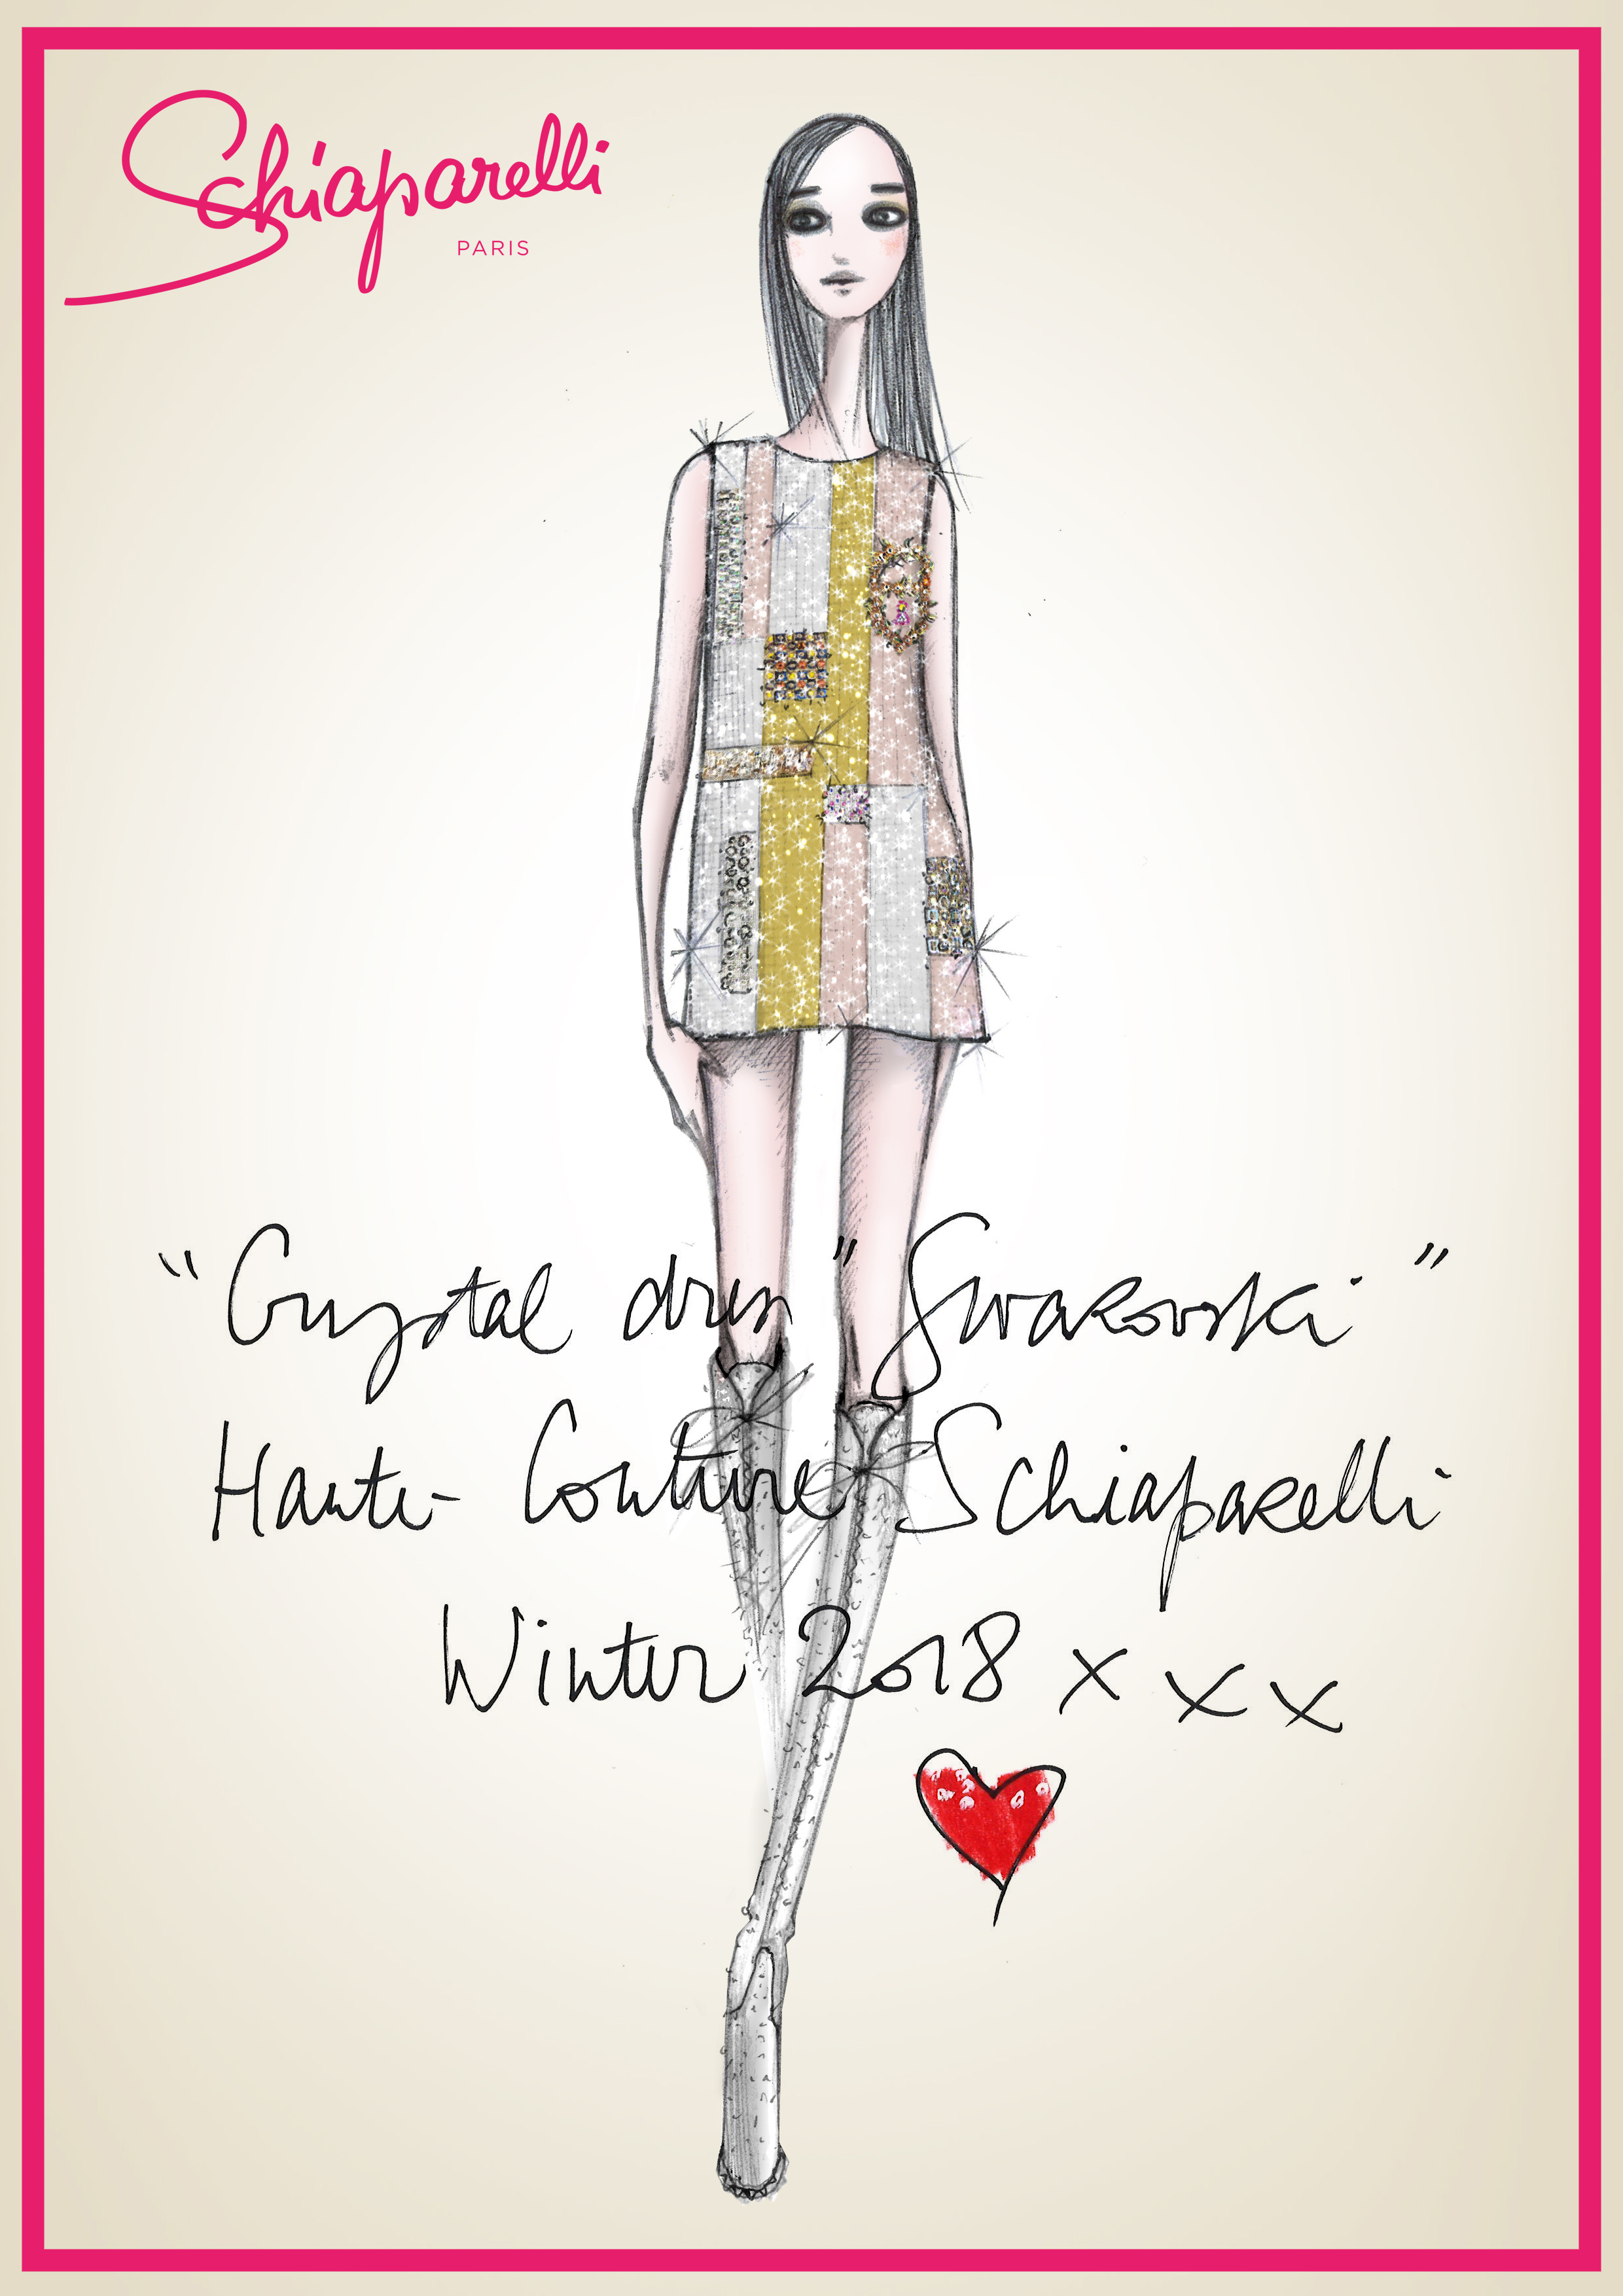 Schiaparelli
PARIS
"Crystal dress" Swarovski"
Haute-Couture Schiaparelli
Winter 2018 x x x